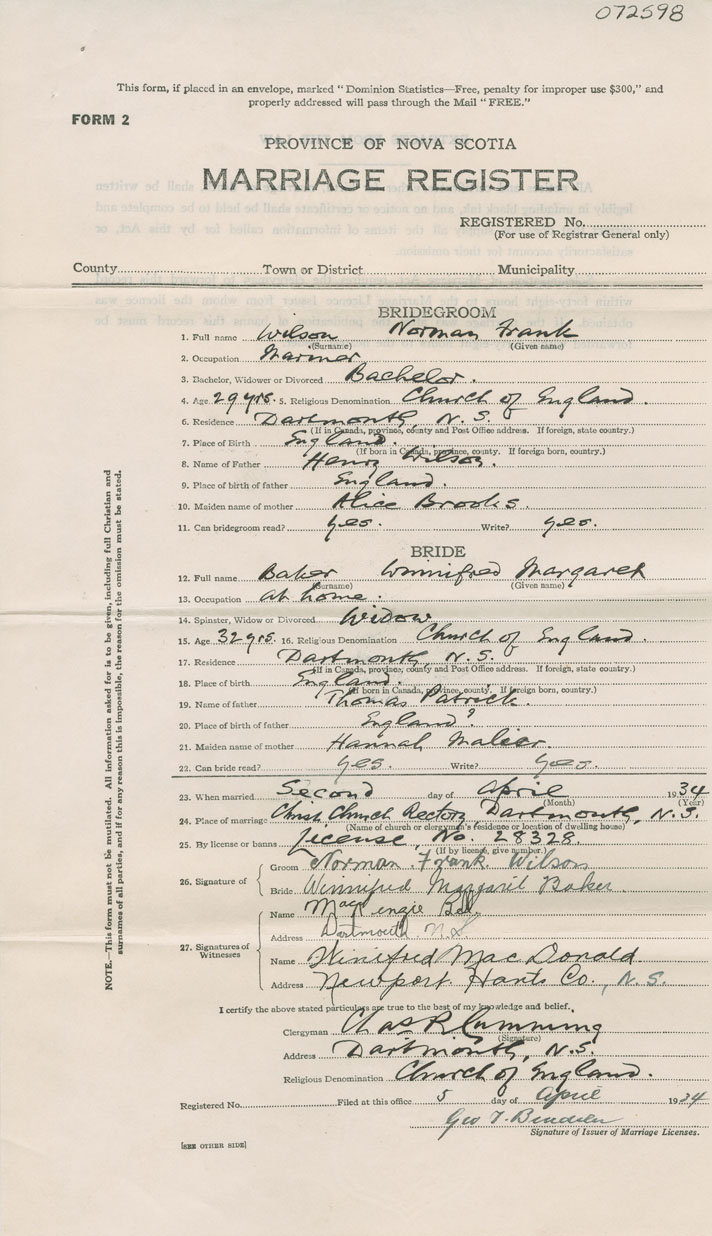 072598
This form, if placed in an envelope, marked "Dominion Statistics—Free, penalty for improper use $300," and
properly addressed will pass through the Mail "FREE."
FORM 2
PROVINCE OF NOVA SCOTIA
MARRIAGE REGISTER
REGISTERED No.
(For use of Registrar General only)
County Town or District Municipality
BRIDEGROOM
1. Full name Wilson Norman Frank
(Surname) (Given name)
2. Occupation Marmer
3. Bachelor, Widower or Divorced Bachelor.
4. Age 29 yrs. 5. Religious Denomination Church of England.
6. Residence Dartmouth, N. S.
(If in Canada, province, county and Post Office address. If foreign, state country.)
7. Place of Birth England.
(If born in Canada, province, county. If foreign born, country.)
8. Name of Father Henry Wilson.
9. Place of birth of father England.
10. Maiden name of mother Alice Brooks.
11. Can bridegroom read? yes. Write? yes.
BRIDE
12. Full name Baker Winnifred Margaret
(Surname) (Given name)
13. Occupation at home.
14. Spinster, Widow or Divorced Widow
15. Age 32 yrs. 16. Religious Denomination Church of England.
17. Residence Dartmouth, N. S.
(If in Canada, province, county and Post Office address. If foreign, state country.)
18. Place of birth England.
(If born in Canada, province, county. If foreign born, country.)
19. Name of father Thomas Patrick.
20. Place of birth of father England?
21. Maiden name of mother Hannah
22. Can bride read? yes. Write? yes.
23. When married Second day of April 1934
(Month) (Year)
24. Place of marriage Christ Church Rectory, Dartmouth, N. S.
(Name of church or clergyman's residence or location of dwelling house)
25. By license or banns License, No. 28328.
(If by license, give number.)
26. Signature of
Groom Norman Frank Wilson
Bride Winnifred Margaret Baker
27. Signatures of Witnesses
Name MacKenzie Bell
Address Dartmouth N.S.
Name Winifred MacDonald
Address Newport Hants Co., N. S.
I certify the above stated particulars are true to the best of my knowledge and belief.
Clergyman Chas R Cumming
(Signature)
Address Dartmouth, N.S.
Religious Denomination Church of England.
Registered No. Filed at this office 5 day of April 1934
Geo T.
Signature of Issuer of Marriage Licenses.
[SEE OTHER SIDE]
NOTE.—This form must not be mutilated. All information asked for is to be given, including full Christian and
surnames of all parties, and if for any reason this is impossible, the reason for the omission must be stated.